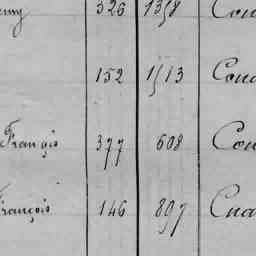 326 1358 Con
152 1513 Cond
François 377 608 Con
François 146 897 Con